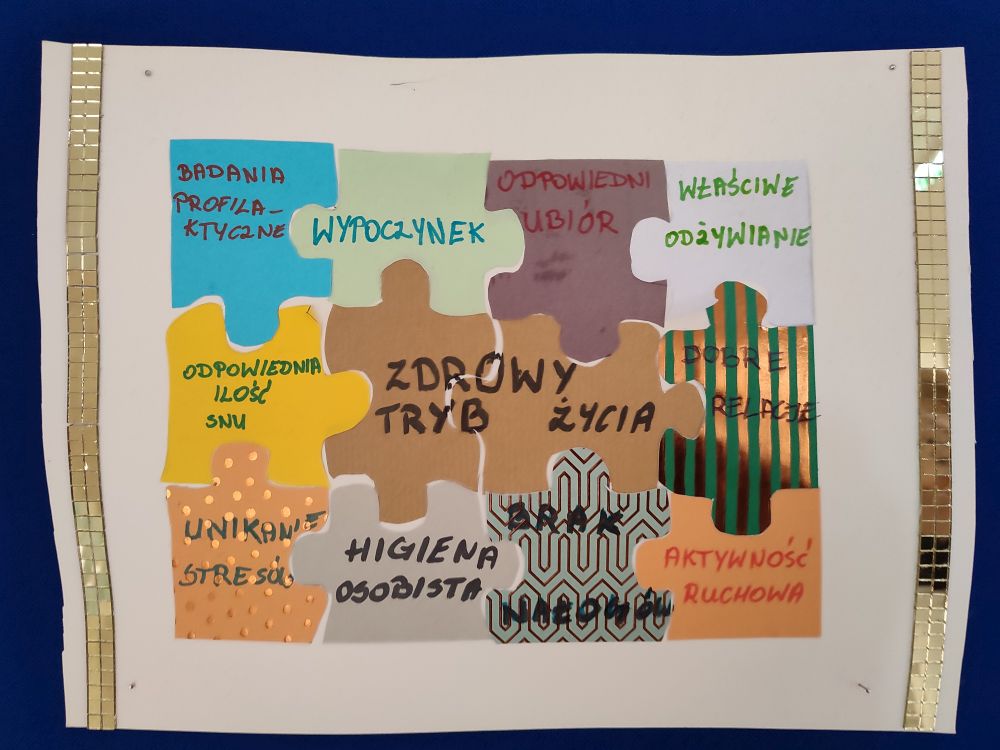 BADANIA
PROFILA-
KTYCZNE
WYPOCZYNEK
ODPOWIEDNI
UBIÓR
WŁAŚCIWE
ODŻYWIANIE
ODPOWIEDNIA
ILOŚĆ
SNU
ZDROWY
TRYB ŻYCIA
DOBRE
RELACJE
UNIKANIE
STRESU
HIGIENA
OSOBISTA
BRAK
NAŁOGÓW
AKTYWNOŚĆ
RUCHOWA